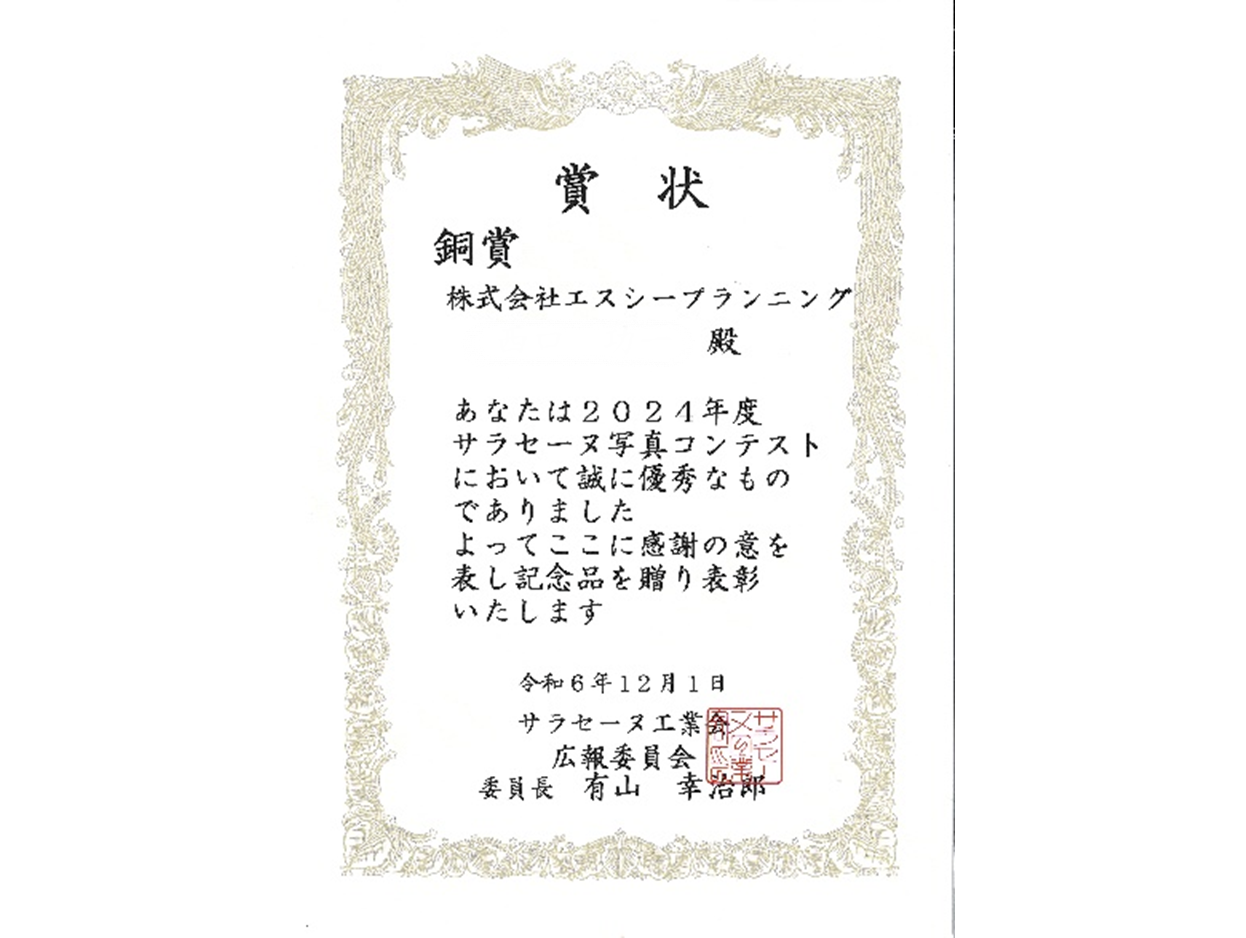 賞　状
銅賞
株式会社エスシープランニング
殿
あなたは２０２４年度
サラセーヌ写真コンテスト
において誠に優秀なもの
でありました
よってここに感謝の意を
表し記念品を贈り表彰
いたします
令和６年１２月１日
サラセーヌ工業会
広報委員会
委員長　有山　幸治郎